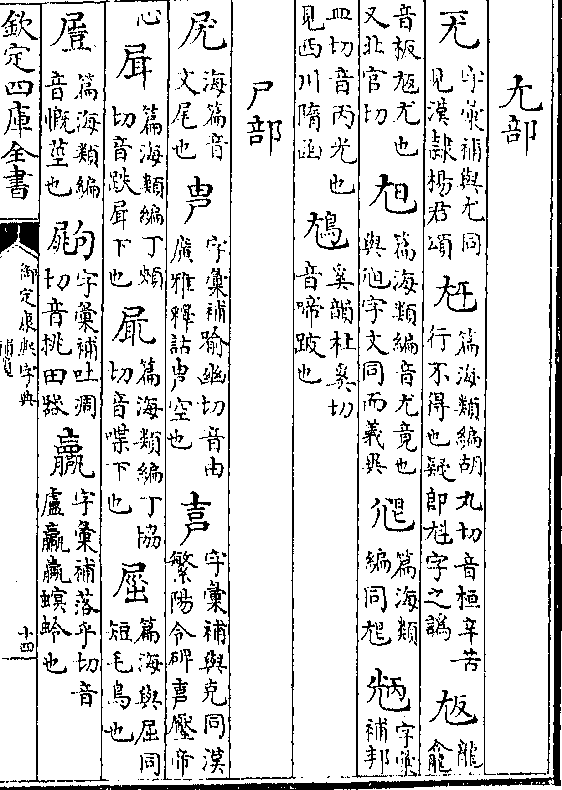 尢部
字彙補與尤同見漢隸楊君頌
篇海類編胡丸切音桓辛苦行不得也疑即尳字之譌
龍龕音板尪尢也又北官切
篇海類編音尤竟也與尥字文同而義異
尮 篇海類編同尮
字彙補邦皿切音丙尢也見西川隋函
奚韻杜奚切音啼跛也
尸部
海篇音文尾也
字彙補踰幽切音由廣雅釋詁空也
字彙補與克同漢繁陽令碑壓帝心
篇海類編丁頰切音跌下也
篇海類編丁協切音喋下也
篇海與屈同短毛鳥也
篇海類編音慨也
字彙補吐凋切音挑田器
字彙補落乎切音盧螟蛉也
欽定四庫全書
御定康熙字典
補遺
十四